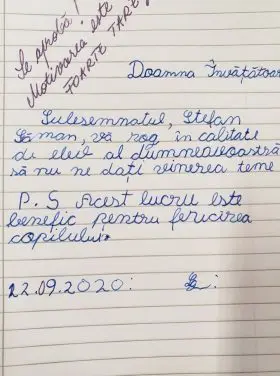 Se aprobă!
Motivarea este
FOARTE TARE
Doamna Învățătoar
Subsemnatul, Ștefan
vă rog în calitate
de elev al dumneavoastră
să nu ne dați vinerea teme
P.S Acest lucru este
benefic pentru fericirea
copilului.
22.09.2020: